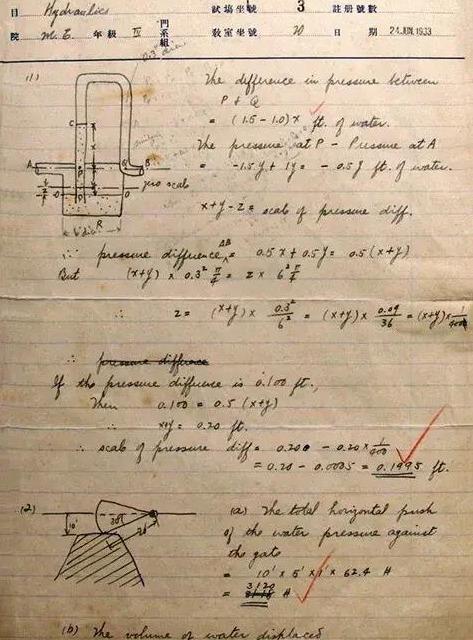 目 Hydraulics 門系組 試場坐號 3 註册號數
院 M.E. 年級 IV 教室坐號 70 日期 24 JUN 1933
0.3" dia.
(1) The difference in pressure between
P & Q
= (1.5 - 1.0) x ft. of water.
The pressure at P - Pressure at A
= -1.5y + 1y = -0.5y ft. of water.
C
A
B
zero scale
x+y-z = scale of pressure diff.
R
6" dia.
∴ pressure difference AB = 0.5x + 0.5y = 0.5(x+y)
But (x+y) x 0.3² π/4 = z x 6² π/4
∴ z = (x+y) x 0.3²/6² = (x+y) x 0.09/36 = (x+y) x 1/400
∴ pressure difference
If the pressure difference is 0.100 ft.,
Then 0.100 = 0.5 (x+y)
∴ x+y = 0.20 ft.
∴ scale of pressure diff = 0.200 - 0.20 x 1/400
= 0.20 - 0.0005 = 0.1995 ft.
(2) (a) The total horizontal push
10'
30°
of the water pressure against
the gate
= 10' x 5' x 1' x 62.4 #
= 3120 #
(b) The volume of water displaced